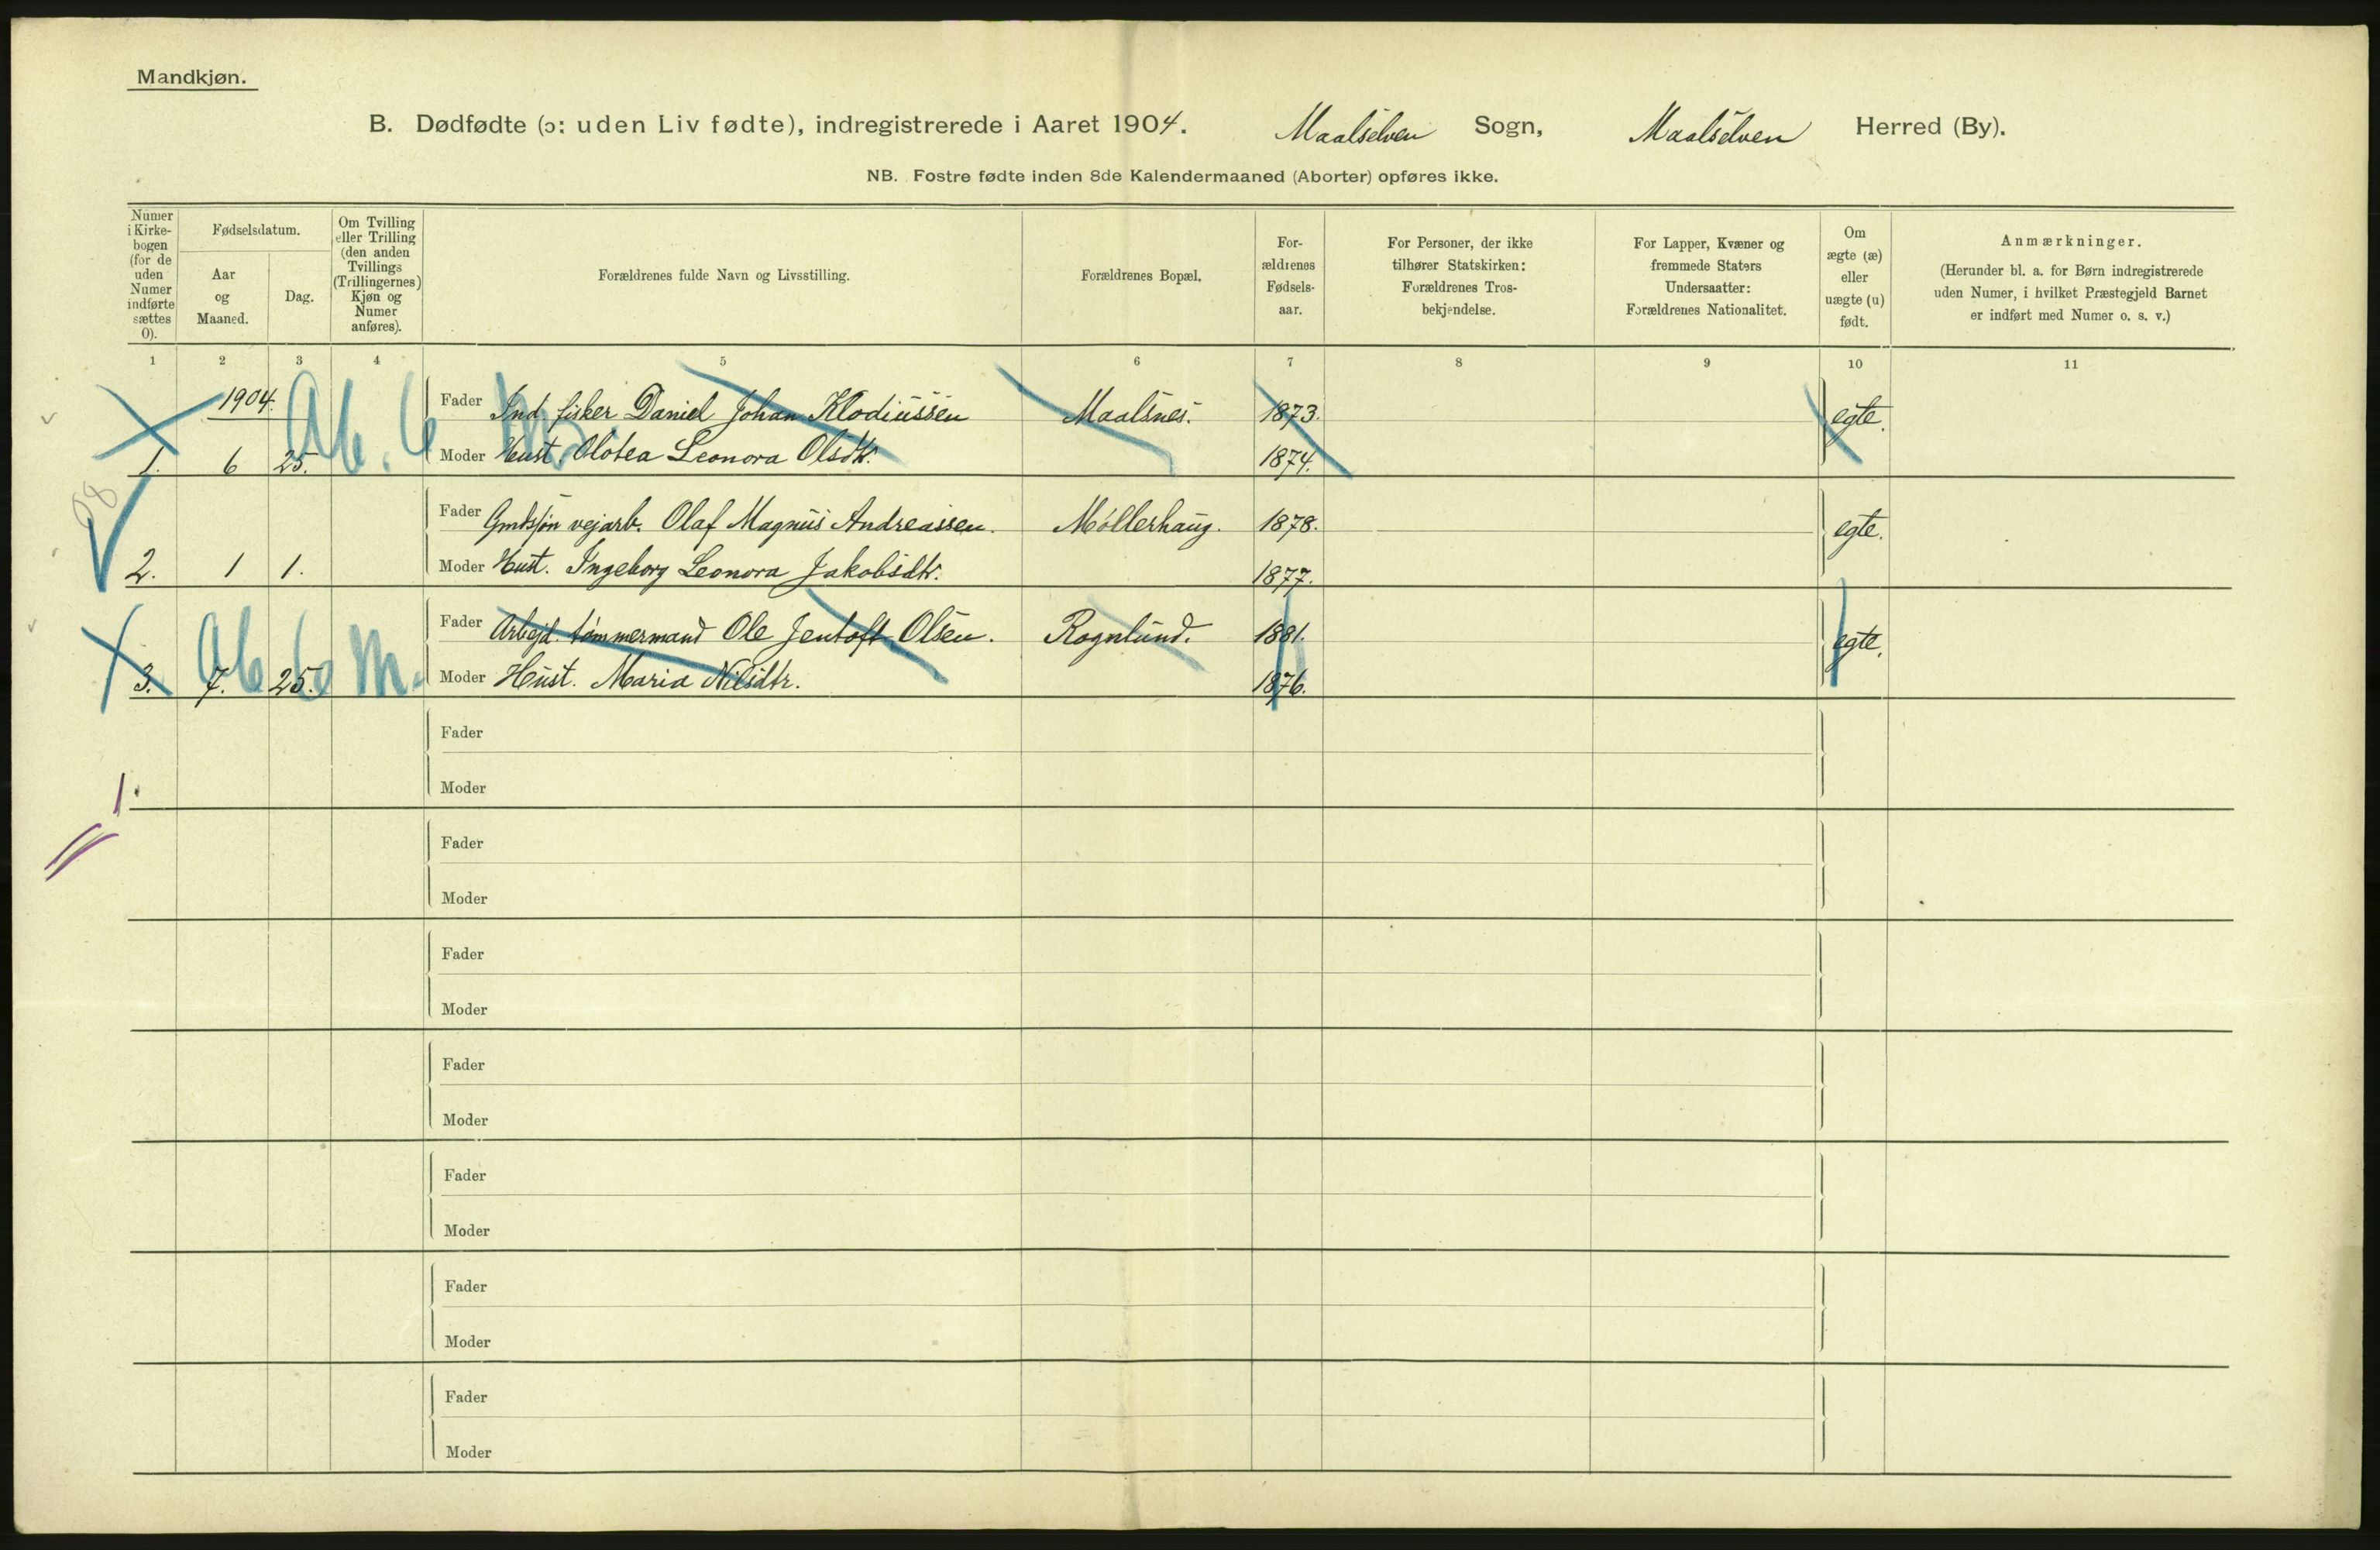 Mandkjøn.
B. Dødfødte (ɔ: uden Liv fødte), indregistrerede i Aaret 1904. Maalselven Sogn, Maalselven Herred (By).
NB. Fostre fødte inden 8de Kalendermaaned (Aborter) opføres ikke.
Numer
i Kirke-
bogen
(for de
uden
Numer
indførte
sættes
0).
Fødselsdatum.
Aar
og
Maaned.
Dag.
Om Tvilling
eller Trilling
(den anden
Tvillings
(Trillingernes)
Kjøn og
Numer
anføres).
Forældrenes fulde Navn og Livsstilling.
Forældrenes Bopæl.
For-
ældrenes
Fødsels-
aar.
For Personer, der ikke
tilhører Statskirken:
Forældrenes Tros-
bekjendelse.
For Lapper, Kvæner og
fremmede Staters
Undersaatter:
Forældrenes Nationalitet.
Om
ægte (æ)
eller
uægte (u)
født.
Anmærkninger.
(Herunder bl. a. for Børn indregistrerede
uden Numer, i hvilket Præstegjeld Barnet
er indført med Numer o. s. v.)
1 2 3 4 5 6 7 8 9 10 11
1904.
Ab. 6 M.
Fader Ind. fisker Daniel Johan Klodiussen Maalsnes. 1873. egte.
1. 6 25. Moder Hust. Olotea Leonora Olsdtr. 1874.
98
Fader Gmdssøn vejarb. Olaf Magnus Andreassen. Møllerhaug. 1878. egte.
2. 1 1. Moder Hust. Ingeborg Leonora Jakobsdtr. 1877.
Ab 6 M.
Fader Arbejd. tømmermand Ole Jentoft Olsen. Rognlund. 1881. egte.
3. 7. 25. Moder Hust. Maria Nilsdtr. 1876.
Fader
1. Moder
Fader
Moder
Fader
Moder
Fader
Moder
Fader
Moder
Fader
Moder
Fader
Moder